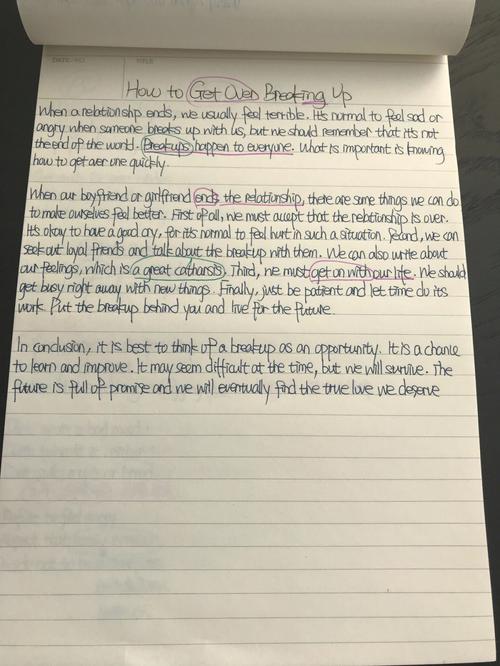 DATE / NO.
TITLE
How to Get Over Breaking Up
When a relationship ends, we usually feel terrible. It's normal to feel sad or
angry when someone breaks up with us, but we should remember that it's not
the end of the world. Breakups happen to everyone. What is important is knowing
how to get over one quickly.
When our boyfriend or girlfriend ends the relationship, there are some things we can do
to make ourselves feel better. First of all, we must accept that the relationship is over.
It's okay to have a good cry, for it's normal to feel hurt in such a situation. Second, we can
seek out loyal friends and talk about the breakup with them. We can also write about
our feelings, which is a great catharsis. Third, we must get on with our life. We should
get busy right away with new things. Finally, just be patient and let time do its
work. Put the breakup behind you and live for the future.
In conclusion, it is best to think of a breakup as an opportunity. It is a chance
to learn and improve. It may seem difficult at the time, but we will survive. The
future is full of promise and we will eventually find the true love we deserve